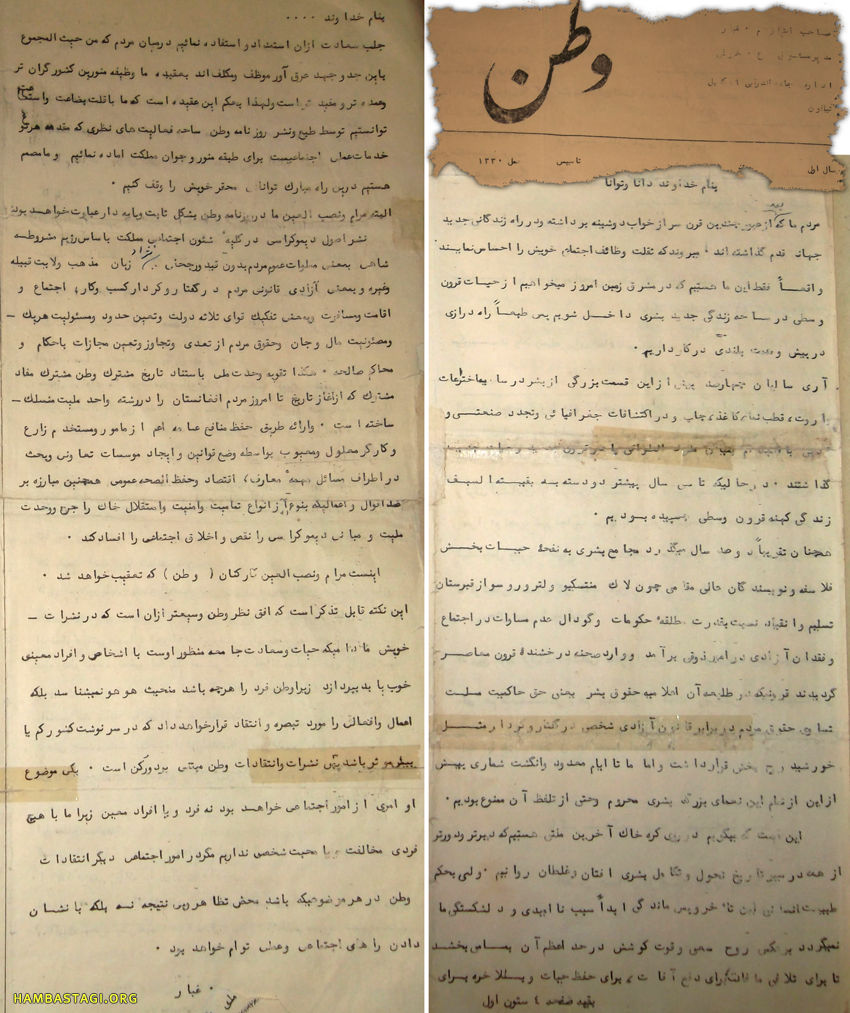 وطن
صاحب امتیاز م ۰ غبار
سال اول
تاسیس
حمل ۱۳۳۰
بنام خداوند دانا وتوانا
مردم ما که از چندین قرن سر از خواب دوشینه برداشته ودر راه زندگانی جدید
جهان قدم گذاشته اند ۰ میروند که ثقلت وظائف اجتماعی خویش را احساس نمایند
واقعاً فقط این ما هستیم که در مشرق زمین امروز میخواهیم از حیات قرون
وسطی در ساحه زندگی جدید بشری داخل شویم پس طبعاً راه درازی
در پیش وهمت بلندی در کار داریم ۰
آری سالیان چهارصد پیش از این قسمت بزرگی از بشر در سایه اختراعات
باروت، قطب نما، کاغذ، چاپ و در اکتشافات جغرافیائی وتجدد صنعتی و
گذاشتند ۰ در حالیکه تا سی سال پیشتر دودسته به بقیة السیف
زندگی کهنه قرون وسطی چسپیده بودیم ۰
همچنان تقریباً دوصد سال میگذرد مجامع بشری به نفخهٔ حیات بخش
فلاسفه ونویسندگان عالی مقامی چون لاک منتسکیو ولتر وروسو از قبرستان
تسلیم وانقیاد نسبت بقدرت مطلقهٔ حکومات وگودال عدم مساوات در اجتماع
وفقدان آزادی در امور ذوقی برآمد و وارد صحنه درخشندهٔ قرون معاصر
گردیدند قرونیکه در طلیعه آن اعلامیه حقوق بشر یعنی حق حاکمیت ملت
تساوی حقوق مردم در برابر قانون آزادی شخصی در گفتار وکردار مثل
خورشید روح بخش قرار داشت واما ما تا ایام معدود وانگشت شماری پیش
از این از تمام این نعمای بزرگ بشری محروم وحتی از تلفظ آن ممنوع بودیم ۰
این است که میگویم در روی کره خاک آخرین ملتی هستیم که دیرتر ودورتر
از همه در سیر تاریخ تحول وتکامل بشری افتان وغلطان روانیم ۰ ولی بحکم
طبیعت انسانی این تاخر وپس ماندگی ابداً سبب ناامیدی و دلشکستگی ما
نمیگردد برعکس روح سعی وقوت کوشش در حد اعظم آن بما می بخشد
تا برای تلافی مافات برای دفع آفات برای حفظ حیات وبالاخره برای
بقیه صفحه ٤ ستون اول
بنام خداوند ۰۰۰۰
جلب سعادت ازان استمداد واستفاده نمائیم درمیان مردم که من حیث المجموع
باین جد وجهد عرق آور موظف ومکلف اند بعقیده ما وظیفه منورین کشور گران تر
وعمده تر ومفید تر است ولهذا بحکم این عقیده است که ما باقلت بضاعت واستطاعت
توانستیم توسط طبع ونشر روزنامه وطن ساحه فعالیت های نظری که مقدمه هرگونه
خدمات عملی اجتماعیست برای طبقه منور وجوان مملکت آماده نمائیم ومامصمم
هستیم درین راه مبارک توانائی محقر خویش را وقف کنیم ۰
البته مرام ونصب العین ما در روزنامه وطن بشکل ثابت وپایه دار عبارت خواهد بود:
نشر اصول دیموکراسی در کلیه شئون اجتماعی مملکت باساس رژیم مشروطه
شاهی بمعنی مساوات عموم مردم بدون قید ورجحان نژاد زبان مذهب ولایت قبیله
وغیره وبمعنی آزادی قانونی مردم در گفتار وکردار کسب وکار، اجتماع و
اقامت ومسافرت وبمعنی تفکیک قوای ثلاثه دولت وتعیین حدود ومسئولیت هریک –
ومصئونیت مال وجان وحقوق مردم از تعدی وتجاوز وتعیین مجازات باحکام و
محاکم صالحه ۰ هکذا تقویه وحدت ملی باستناد تاریخ مشترک وطن مشترک مفاد
مشترک که از آغاز تاریخ تا امروز مردم افغانستان را در رشته واحد ملیت منسلک –
ساخته است ۰ وارائه طریق حفظ منافع عامه اعم از مامور ومستخدم زارع
وکارگر معلول ومعیوب بواسطه وضع قوانین وایجاد موسسات تعاونی وبحث
در اطراف مسائل مهمه معارف، اقتصاد وحفظ الصحه عمومی همچنین مبارزه بر
ضد اقوال واعمالیکه بنوعی از انواع تمامیت وامنیت واستقلال خاک را جرح ووحدت
ملیت و مبانی دیموکراسی را نقص واخلاق اجتماعی را افساد کند ۰
اینست مرام ونصب العین کارکنان ( وطن ) که تعقیب خواهد شد ۰
این نکته قابل تذکر است که افق نظر وطن وسیعتر ازان است که در نشرات –
خویش مادامیکه حیات وسعادت جامعه منظور اوست با اشخاص وافراد معینی
خوب یا بد بپردازد زیرا وطن فرد را هرچه باشد منحیث هو هو نمیشناسد بلکه
اعمال وافعالی را مورد تبصره وانتقاد قرار خواهد داد که در سرنوشت کشور کم یا
بیش موثر باشد پس نشرات وانتقادات وطن مبتنی بر دو رکن است ۰ یکی موضوع
او امری از امور اجتماعی خواهد بود نه فرد و یا افراد معین زیرا ما با هیچ
فردی مخالفت و یا محبت شخصی نداریم مگر در امور اجتماعی دیگر انتقادات
وطن در هر موضوعیکه باشد محض تظاهر وبی نتیجه نه بلکه با نشان
دادن راه های اجتماعی وعملی توام خواهد بود ۰
۰ غبار
HAMBASTAGI.ORG